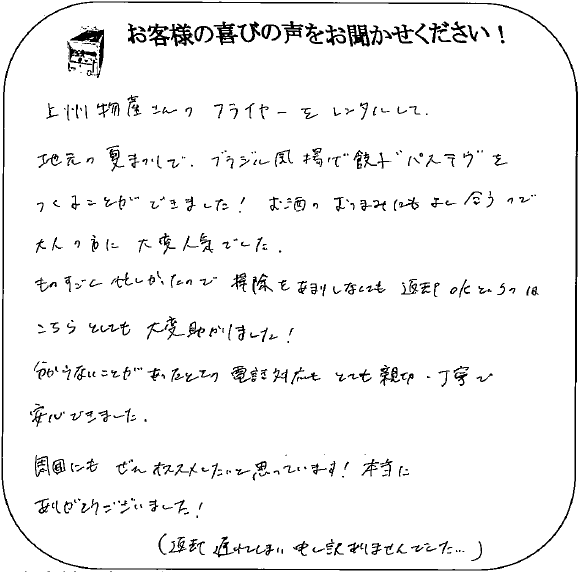 お客様の喜びの声をお聞かせください！
上州物産さんの フライヤーを レンタルして、
地元の夏まつりで、ブラジル風揚げ餃子"パステウ"を
つくることができました！ お酒のおつまみにもよく合うので
大人の方に 大変人気でした。
ものすごく忙しかったので 掃除をあまりしなくても 返却OKというのは
こちらとしても 大変助かりました！
分からないことがあったときの 電話対応も とても親切・丁寧で
安心できました。
周囲にも ぜひオススメしたいと思っています！ 本当に
ありがとうございました！
（返却 遅れてしまい 申し訳ありませんでした…）